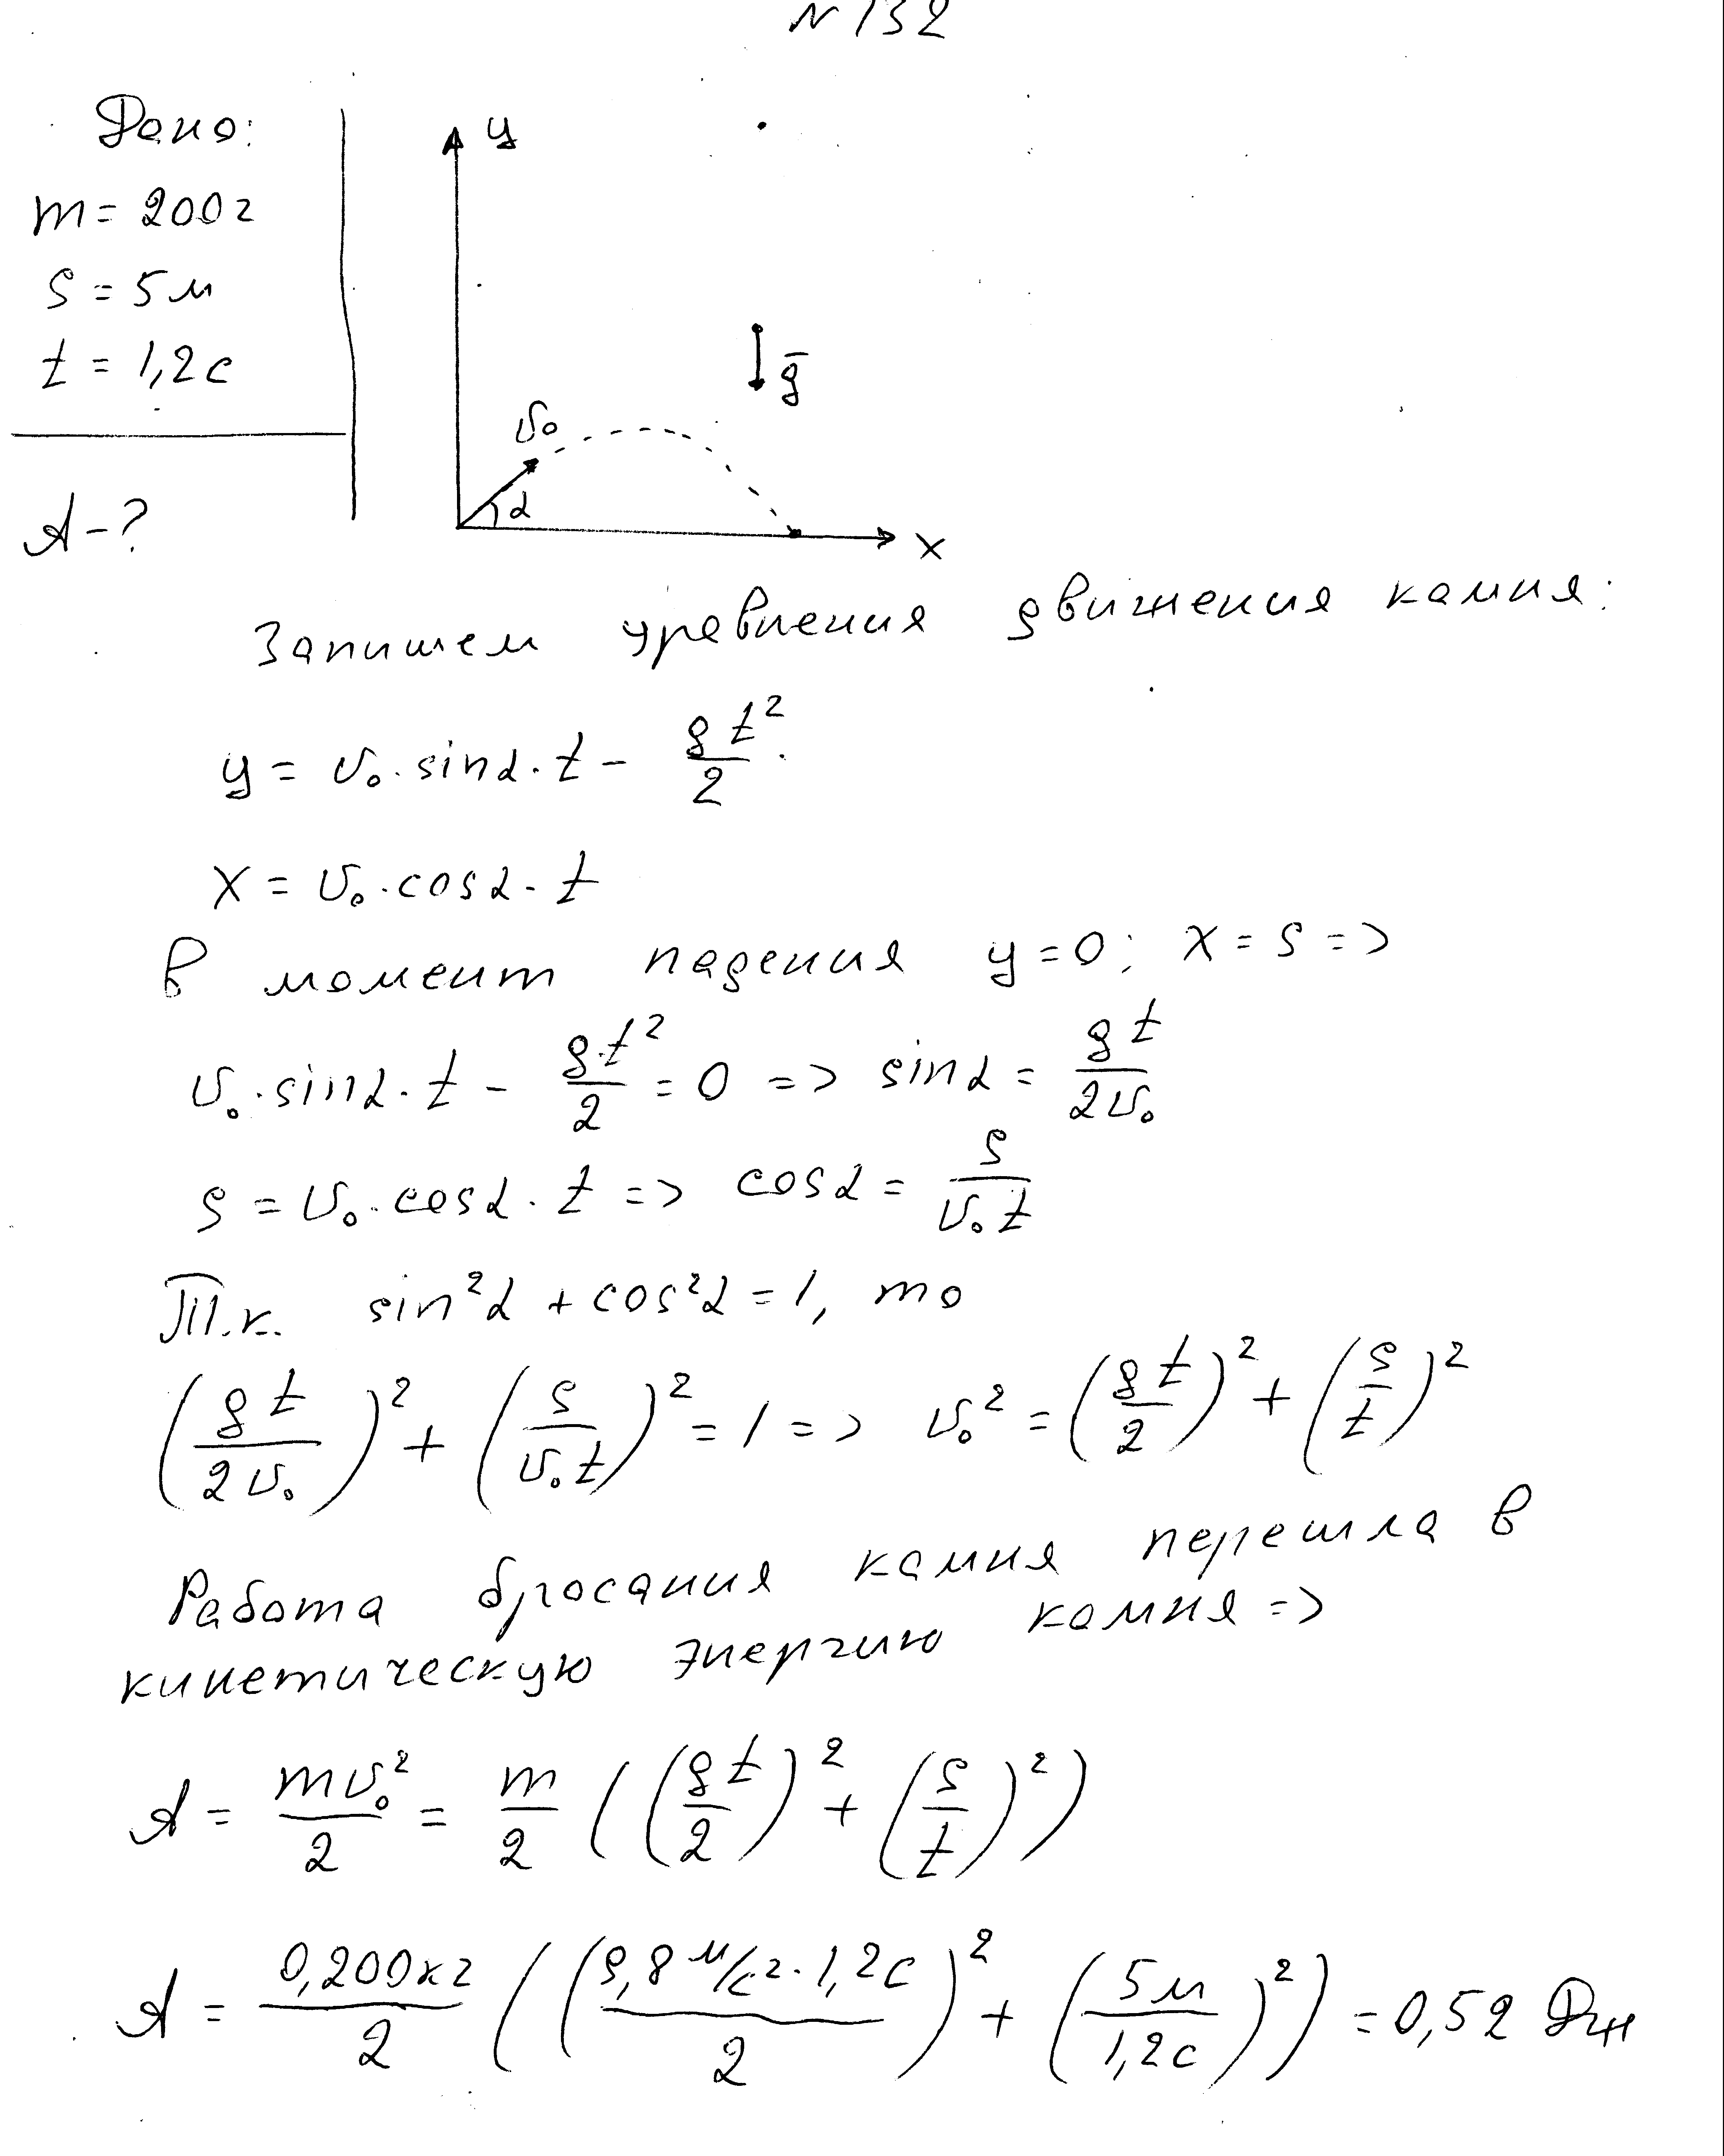 N 132
Дано:
m = 200 г
S = 5 м
t = 1,2 с
A - ?
y
g̅
v₀
α
x
Запишем уравнения движения камня:
y = v₀ · sinα · t - gt²/2
x = v₀ · cosα · t
В момент падения y = 0; x = S =>
v₀ · sinα · t - g·t²/2 = 0 => sinα = gt/2v₀
S = v₀ · cosα · t => cosα = S/v₀t
Т.к. sin²α + cos²α = 1, то
(gt/2v₀)² + (S/v₀t)² = 1 => v₀² = (gt/2)² + (S/t)²
Работа бросания камня перешла в
кинетическую энергию камня =>
A = mv₀²/2 = m/2 ((gt/2)² + (S/t)²)
A = 0,200кг/2 ((9,8 м/с² · 1,2с/2)² + (5м/1,2с)²) = 0,52 Дж